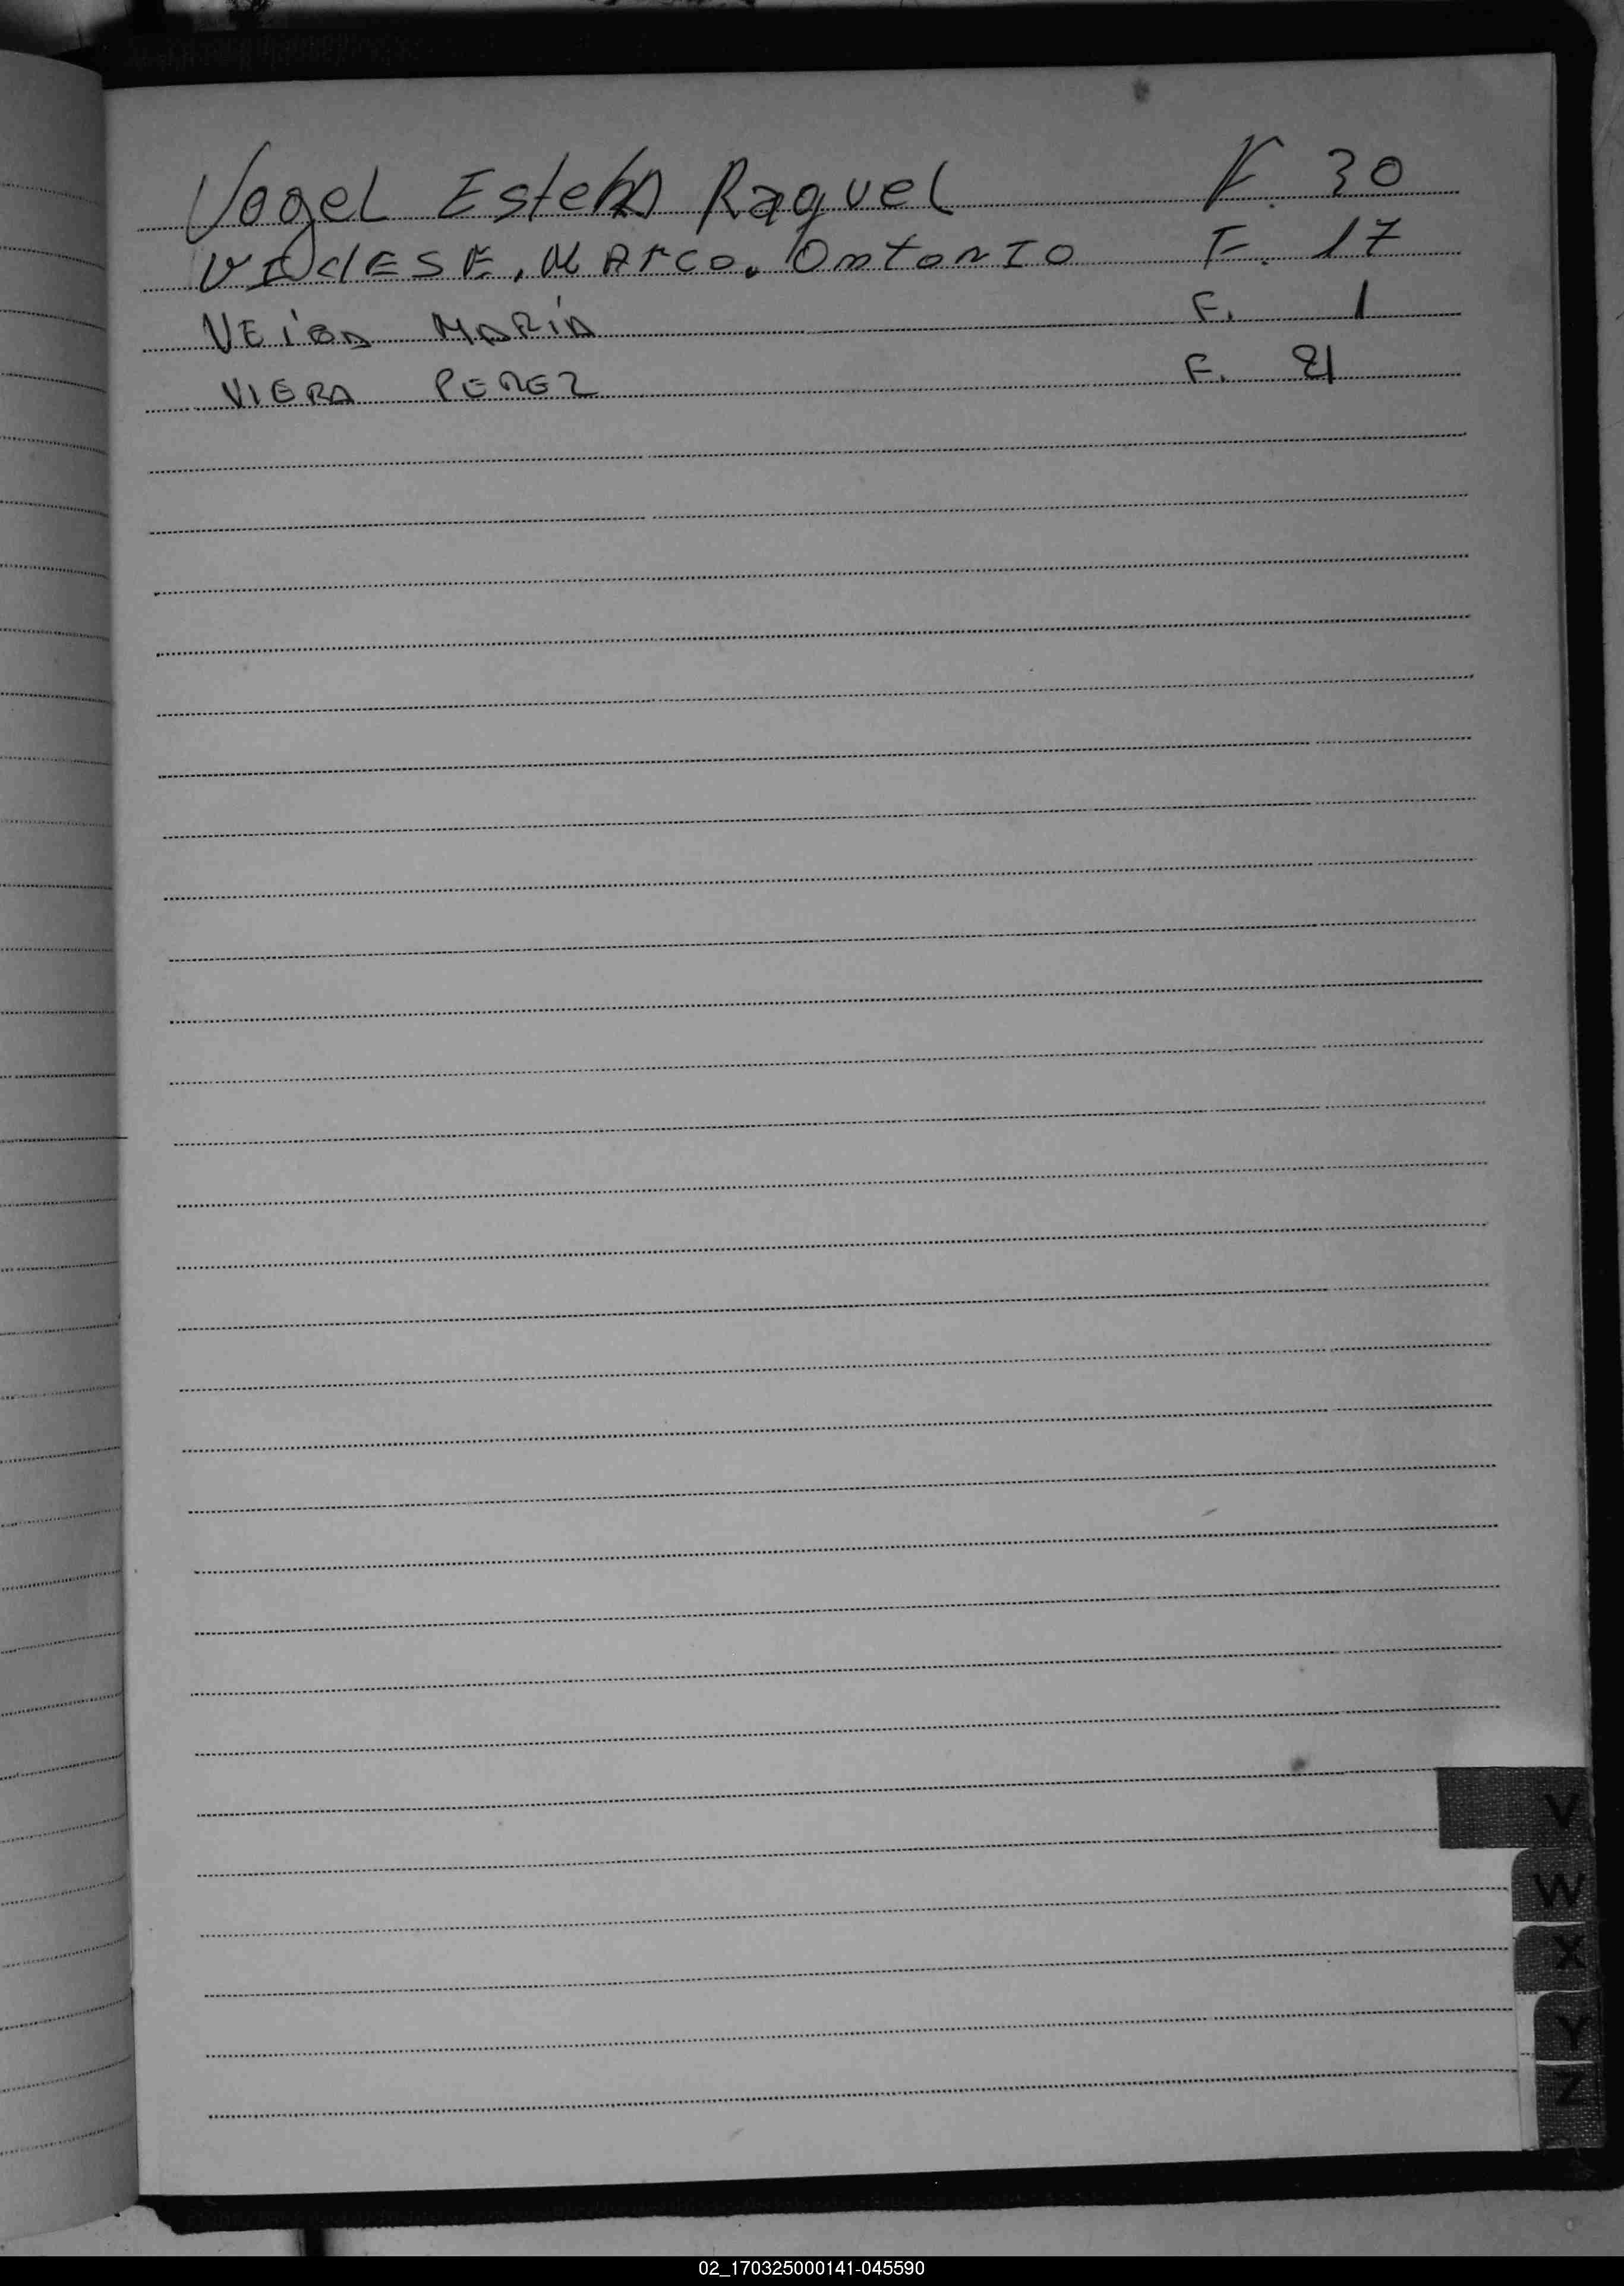 Vogel Estela Raquel F. 30
VIdESE, MArco. Ontonio F. 17
VEiGA MARÍA F. 1
VIERA PEREZ F. 21
V
W
X
Y
Z
02_170325000141-045590